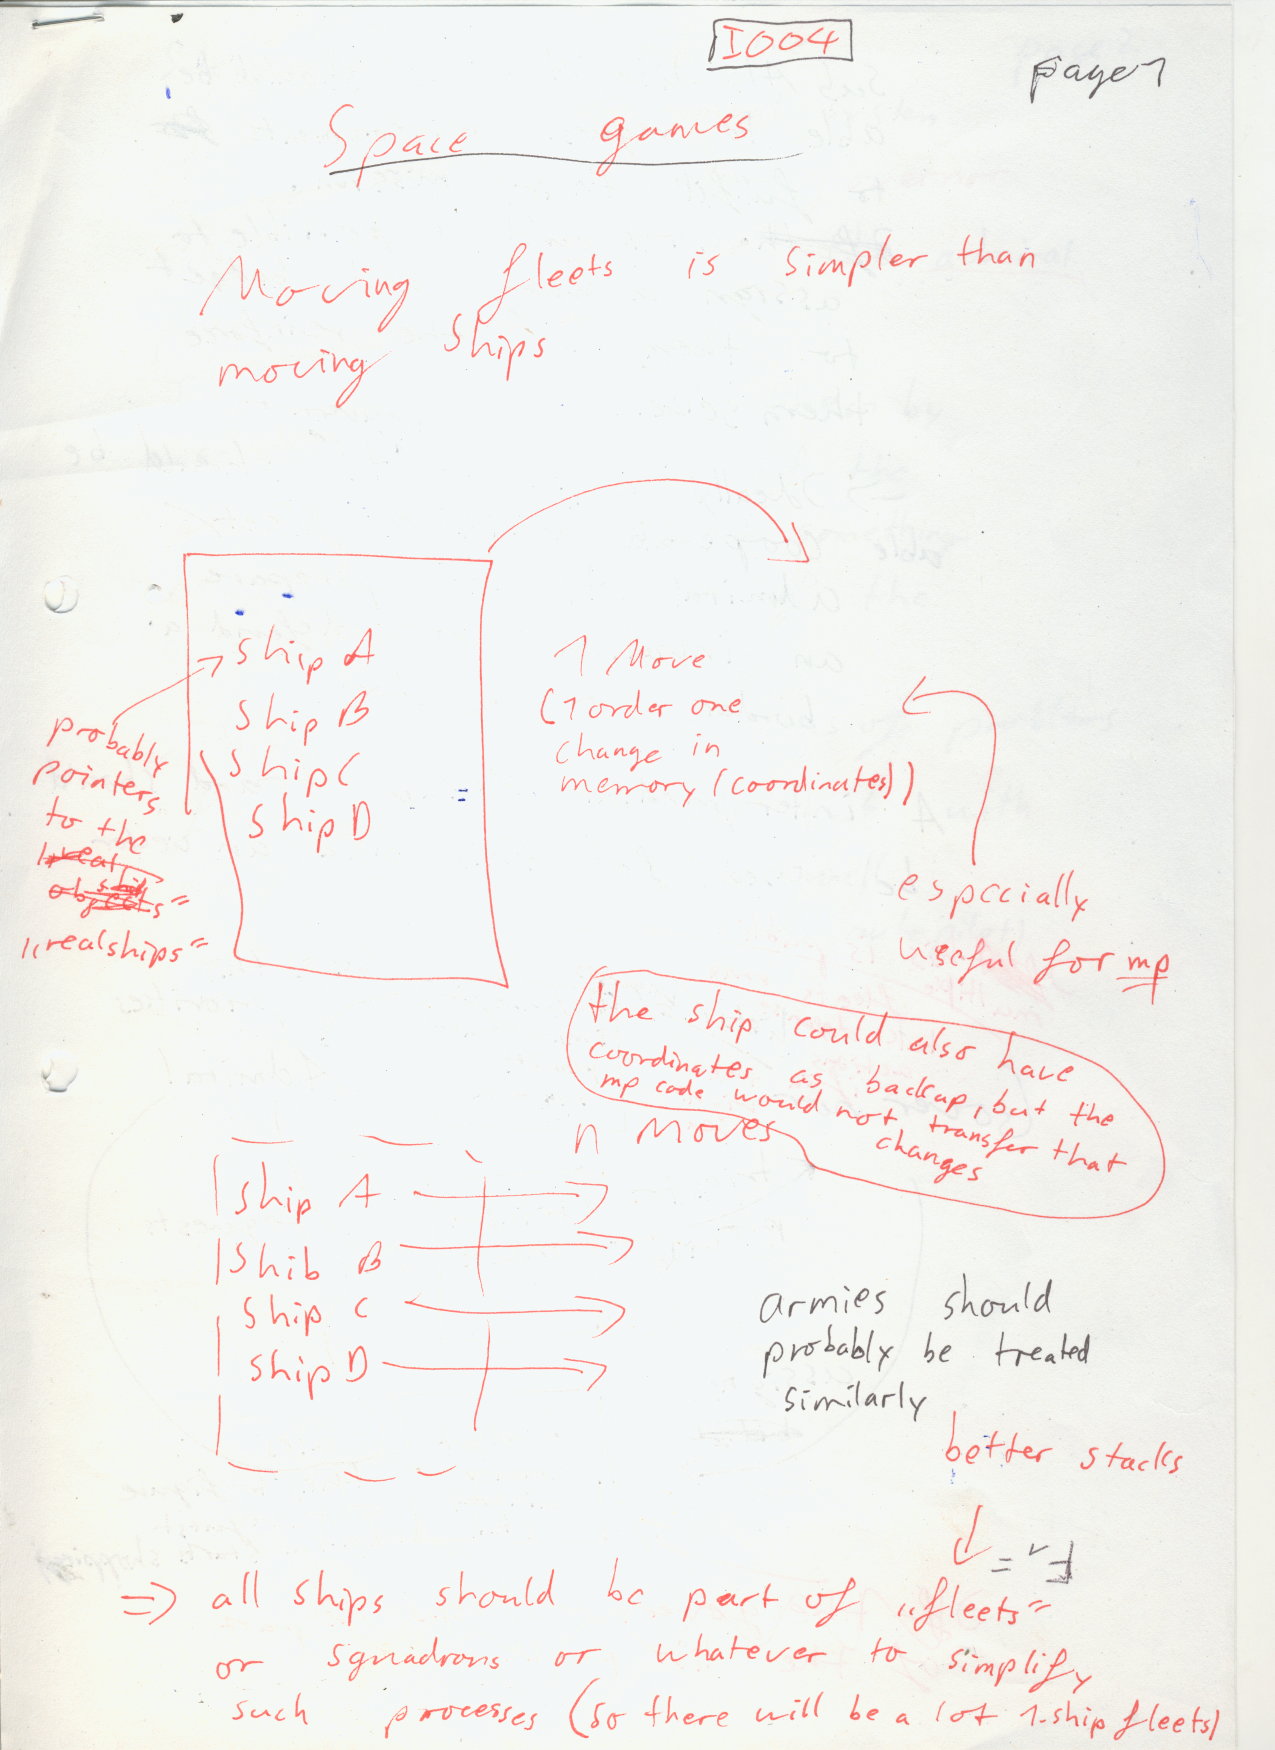 I004
page 1
Space games
Moving fleets is simpler than
moving ships
ship A
ship B
ship C
ship D
probably
pointers
to the
„realships"
1 Move
(1 order one
change in
memory (coordinates))
especially
useful for mp
the ship could also have
coordinates as backup, but the
mp code would not transfer that
changes
n Moves
ship A
Shib B
ship C
ship D
armies should
probably be treated
similarly
better stacks
=> all ships should be part of „fleets"
or squadrons or whatever to simplify
such processes (so there will be a lot 1-ship fleets)